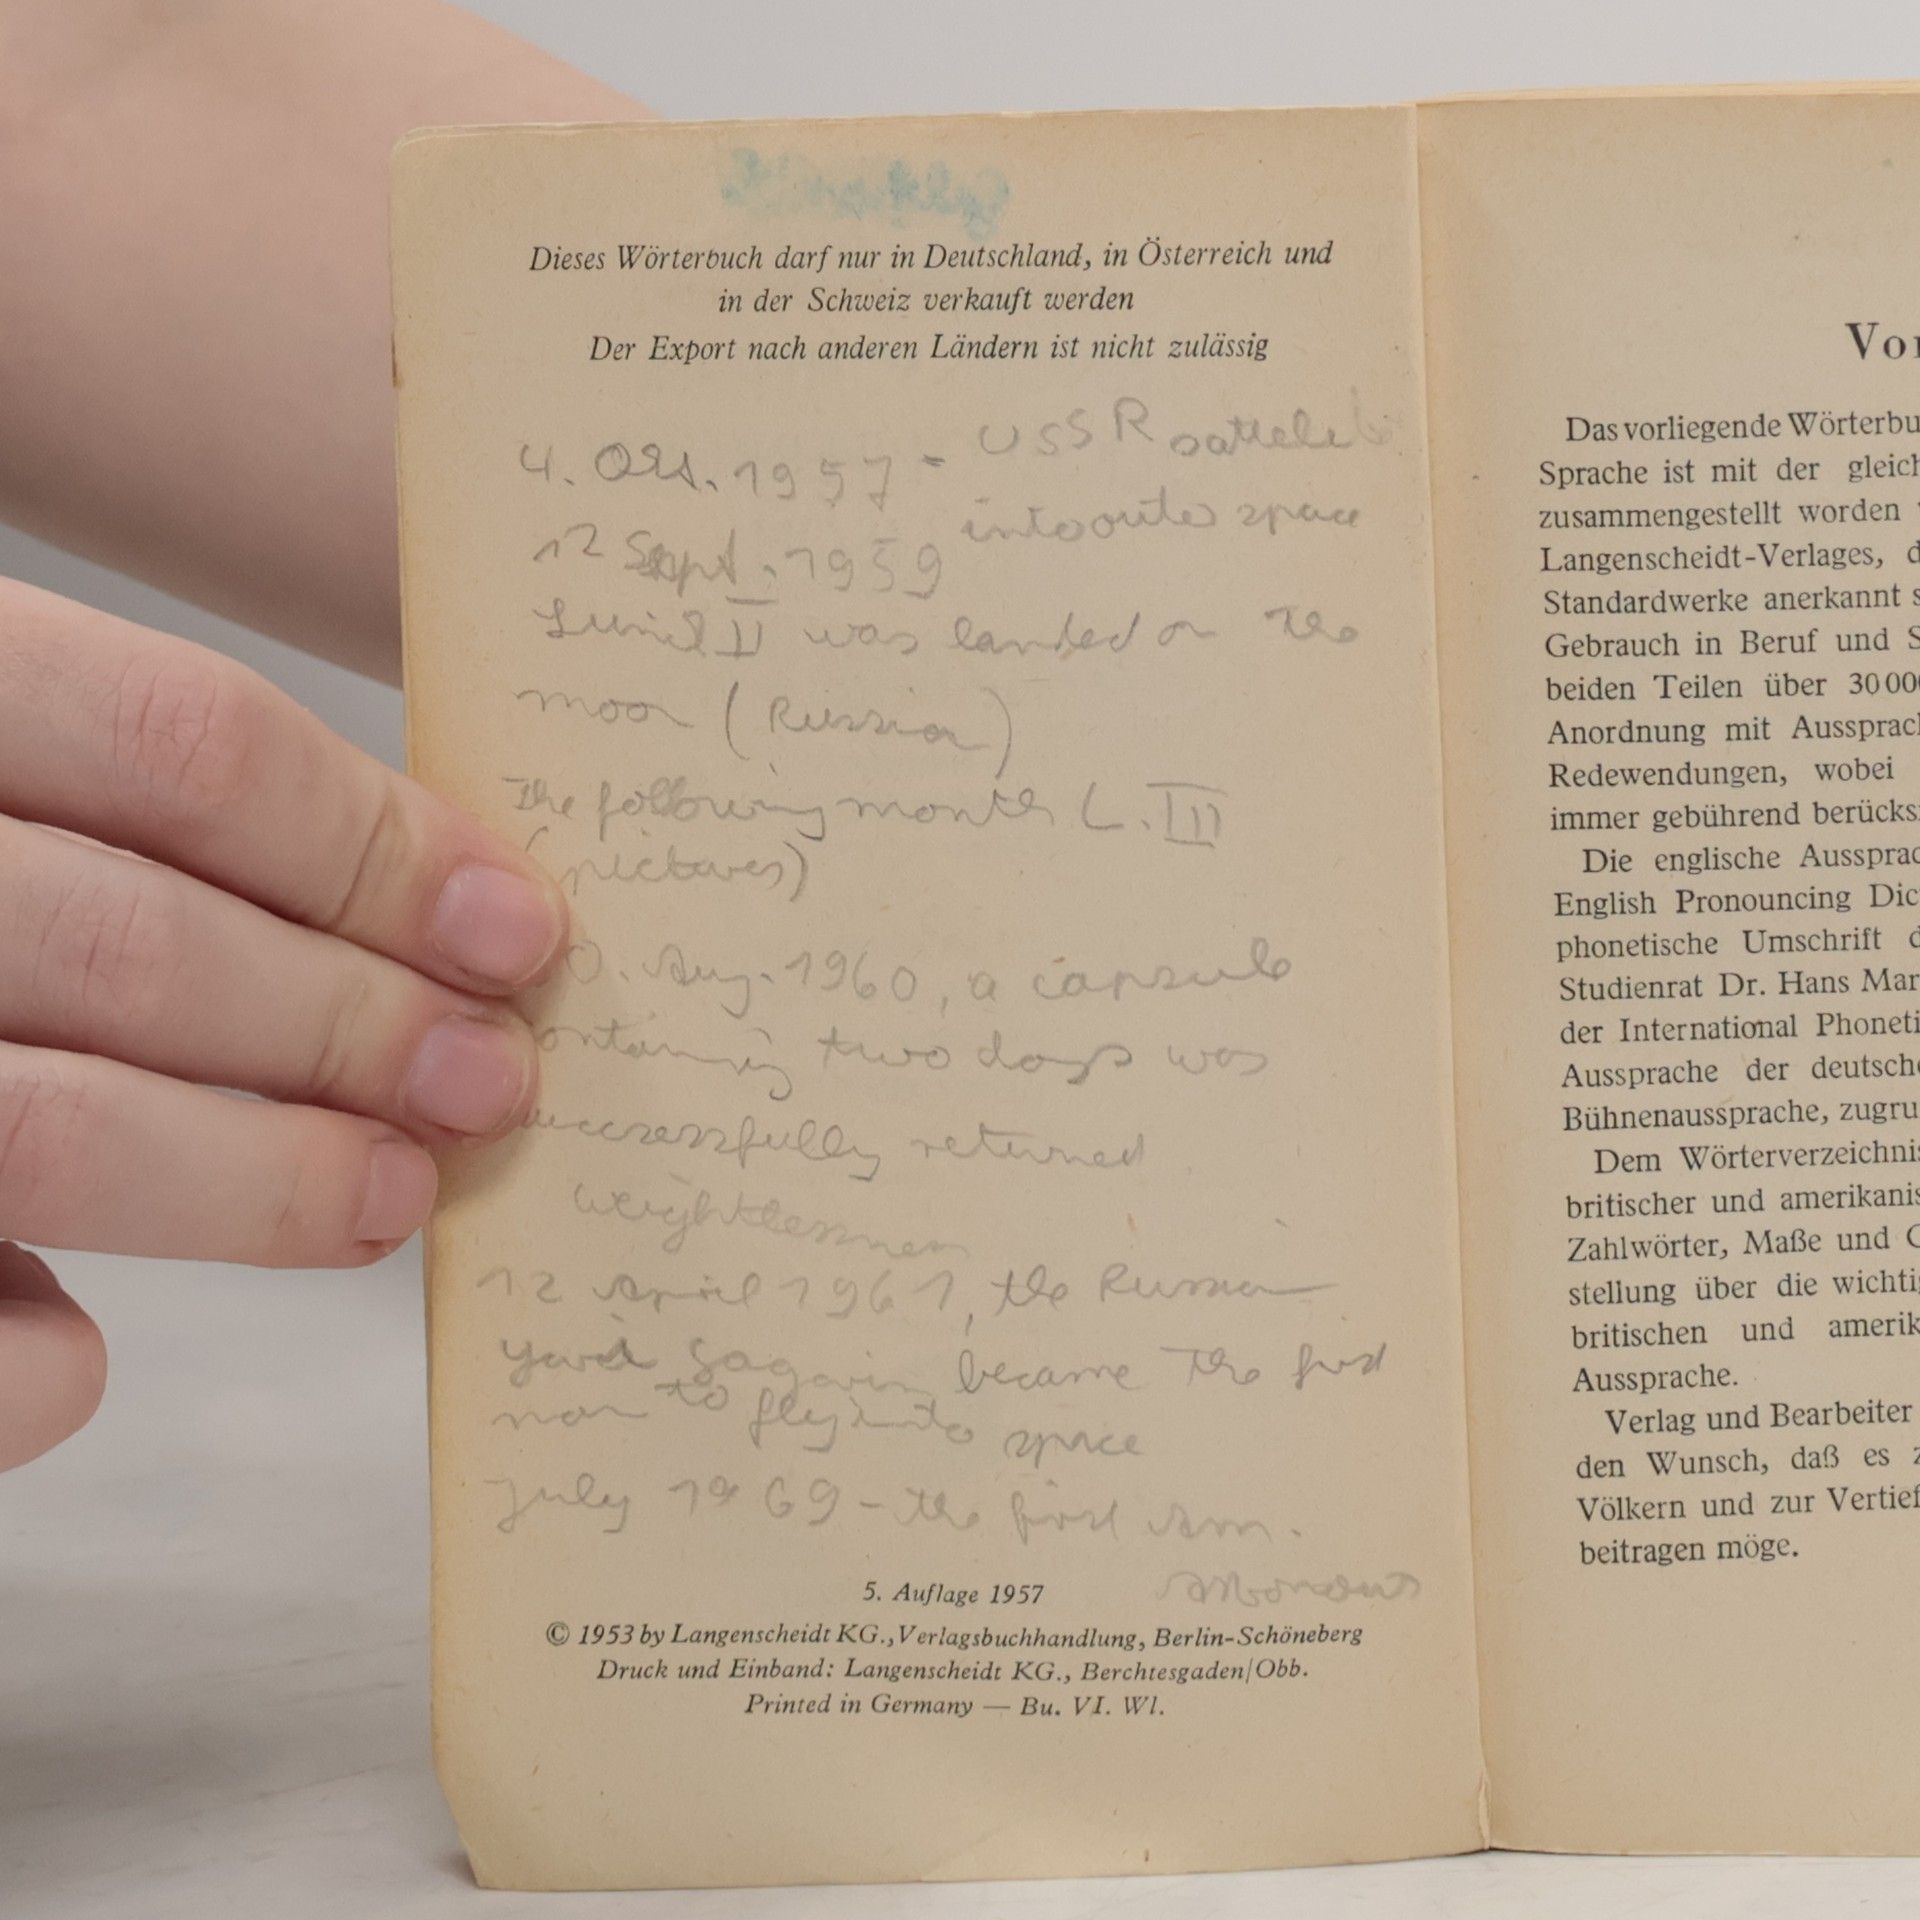 Dieses Wörterbuch darf nur in Deutschland, in Österreich und
in der Schweiz verkauft werden
Der Export nach anderen Ländern ist nicht zulässig
4. Okt. 1957 - USSR
into outer space
12 Sept. 1959
II was landed on the
moon (Russia)
The following month L. III
(pictures)
0. Aug. 1960, a capsule
ontaining two dogs was
uccessfully returned
weightlessness
12 April 1961, the Russian
Gagarin became the first
man to fly into space
July 1969 - the first Am.
5. Auflage 1957
© 1953 by Langenscheidt KG., Verlagsbuchhandlung, Berlin-Schöneberg
Druck und Einband: Langenscheidt KG., Berchtesgaden/Obb.
Printed in Germany — Bu. VI. Wl.
Vor
Das vorliegende Wörterbu
Sprache ist mit der gleich
zusammengestellt worden
Langenscheidt-Verlages, d
Standardwerke anerkannt s
Gebrauch in Beruf und S
beiden Teilen über 30 000
Anordnung mit Aussprach
Redewendungen, wobei
immer gebührend berücks
Die englische Aussprac
English Pronouncing Dic
phonetische Umschrift d
Studienrat Dr. Hans Mar
der International Phoneti
Aussprache der deutsche
Bühnenaussprache, zugru
Dem Wörterverzeichnis
britischer und amerikanis
Zahlwörter, Maße und G
stellung über die wichtig
britischen und amerik
Aussprache.
Verlag und Bearbeiter
den Wunsch, daß es z
Völkern und zur Vertief
beitragen möge.